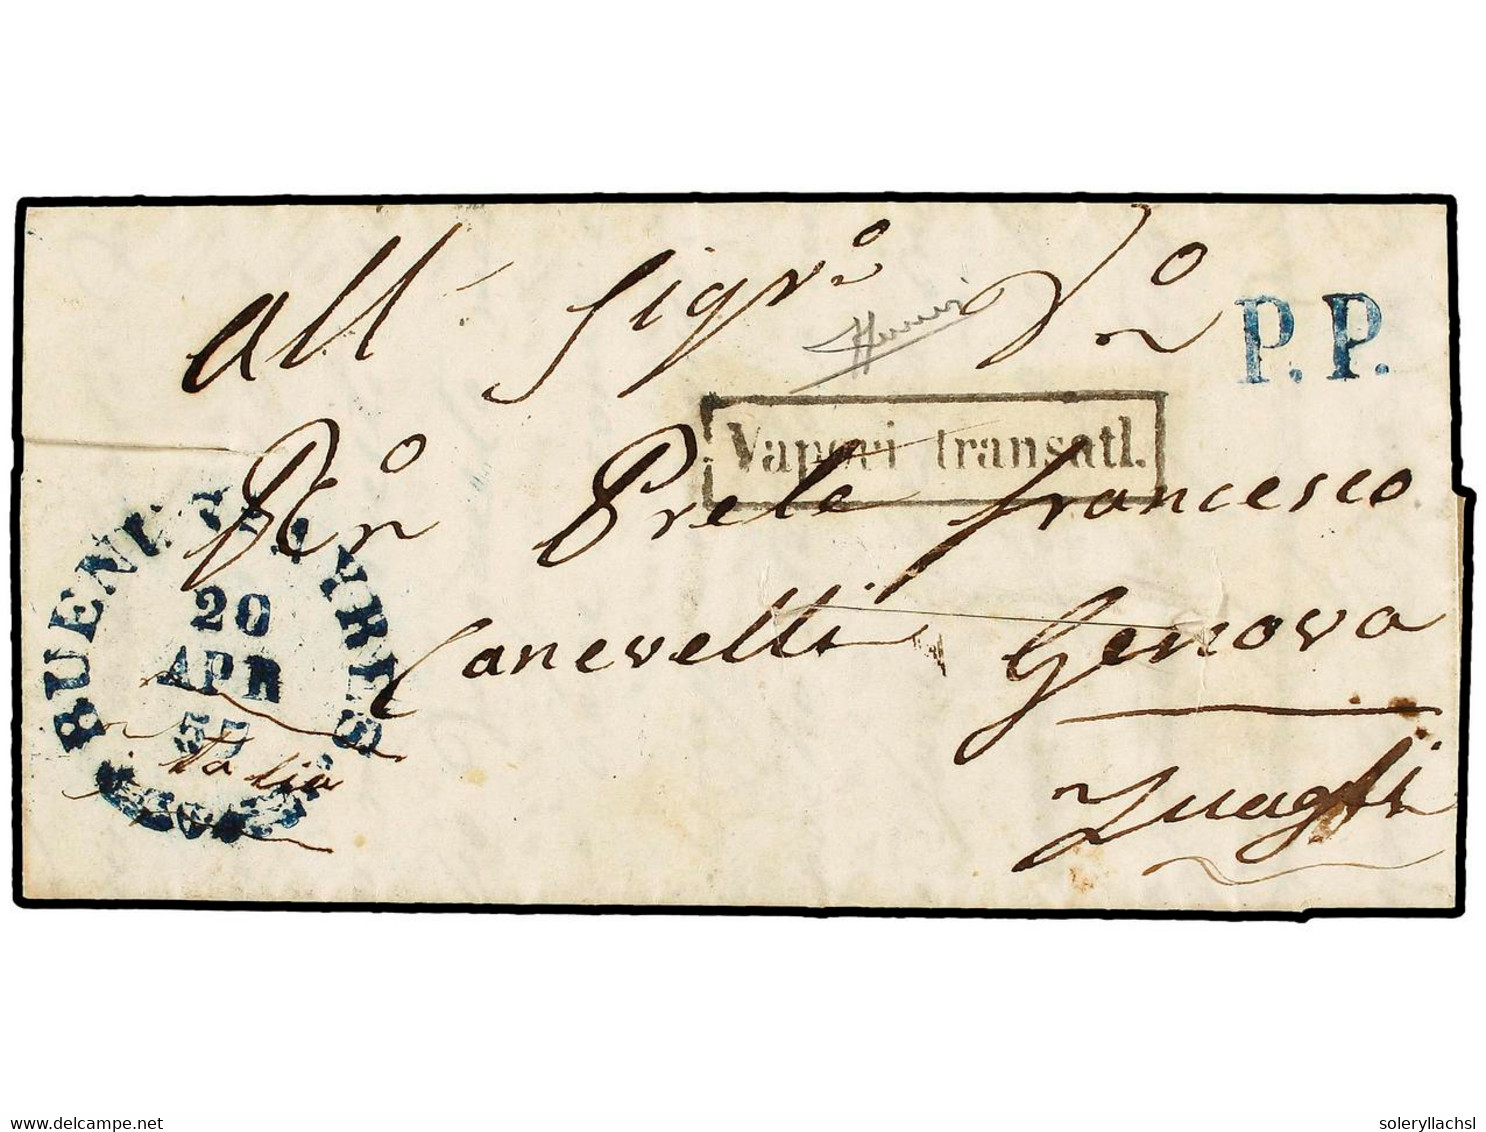 all' Sigr.º
P.P.
Vapori transatl.
Prete francesco
Canevelli Genova
Zuagli
BUENOS AYRES
20
APR
57
Italia
www.delcampe.net
soleryllachsl